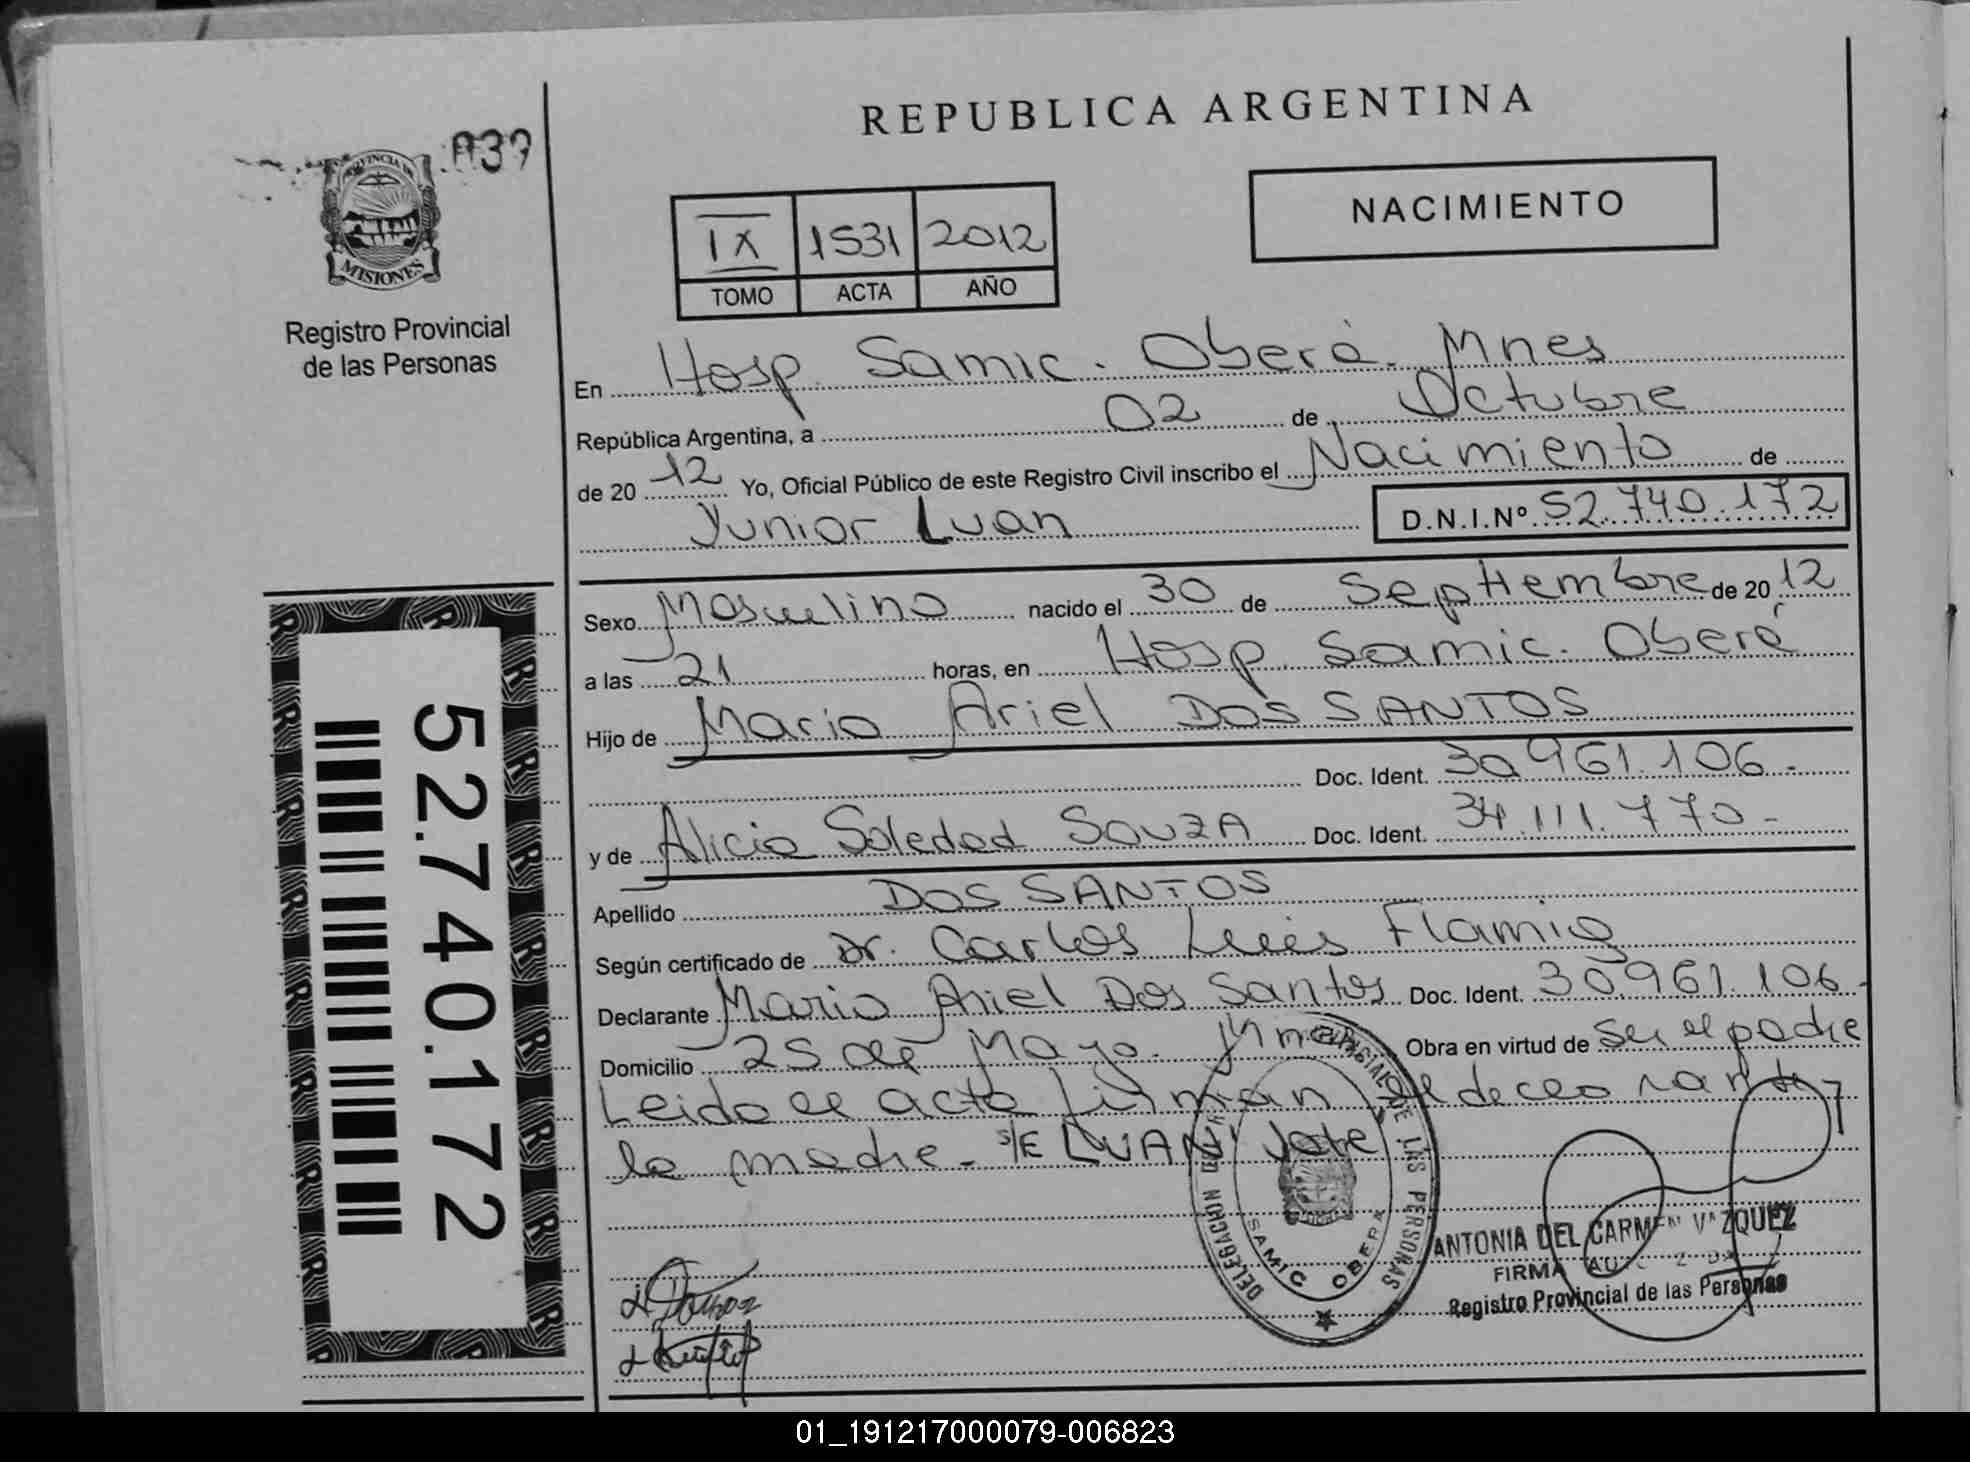 REPUBLICA ARGENTINA
039
PROVINCIA DE
MISIONES
Registro Provincial
de las Personas
NACIMIENTO
IX 1531 2012
TOMO ACTA AÑO
En Hosp. Samic. Oberá. Mnes
República Argentina, a 02 de Octubre
de 20 12 Yo, Oficial Público de este Registro Civil inscribo el Nacimiento de
Junior Luan D.N.I.Nº 52.740.172
Sexo Masculino nacido el 30 de Septiembre de 20 12
a las 21 horas, en Hosp. Samic. Oberá
Hijo de Mario Ariel DOS SANTOS
Doc. Ident. 30.961.106.-
y de Alicia Soledad SOUZA Doc. Ident. 34.111.770.-
Apellido DOS SANTOS
Según certificado de Dr. Carlos Luis Flamig
Declarante Mario Ariel Dos Santos Doc. Ident. 30.961.106.-
Domicilio 25 de Mayo. Mnes Obra en virtud de Ser el padre
Leido el acta firman el declarante y
la madre.- s/E LUAN Vale
52.740.172
DELEGACION REG. PROVINCIAL DE LAS PERSONAS
SAMIC OBERA
ANTONIA DEL CARMEN VAZQUEZ
FIRMA AUTORIZADA
Registro Provincial de las Personas
01_191217000079-006823